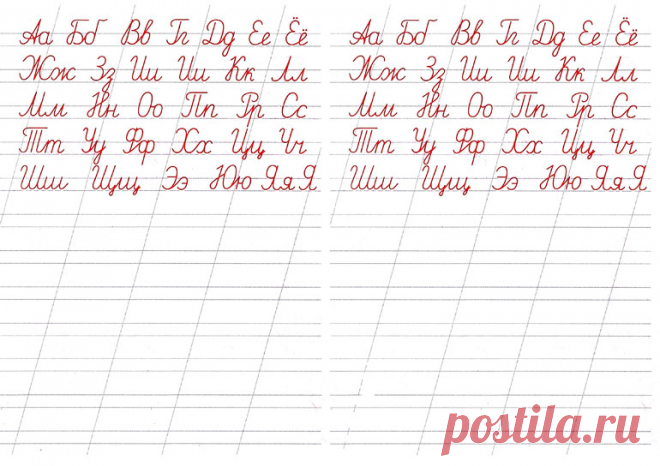 Аа Бб Вв Гг Дд Ее Ёё
Жж Зз Ии Ии Кк Лл
Мм Нн Оо Пп Рр Сс
Тт Уу Фф Хх Цц Чч
Шш Щщ Ээ Юю Яя Я
Аа Бб Вв Гг Дд Ее Ёё
Жж Зз Ии Ии Кк Лл
Мм Нн Оо Пп Рр Сс
Тт Уу Фф Хх Цц Чч
Шш Щщ Ээ Юю Яя Я
postila.ru